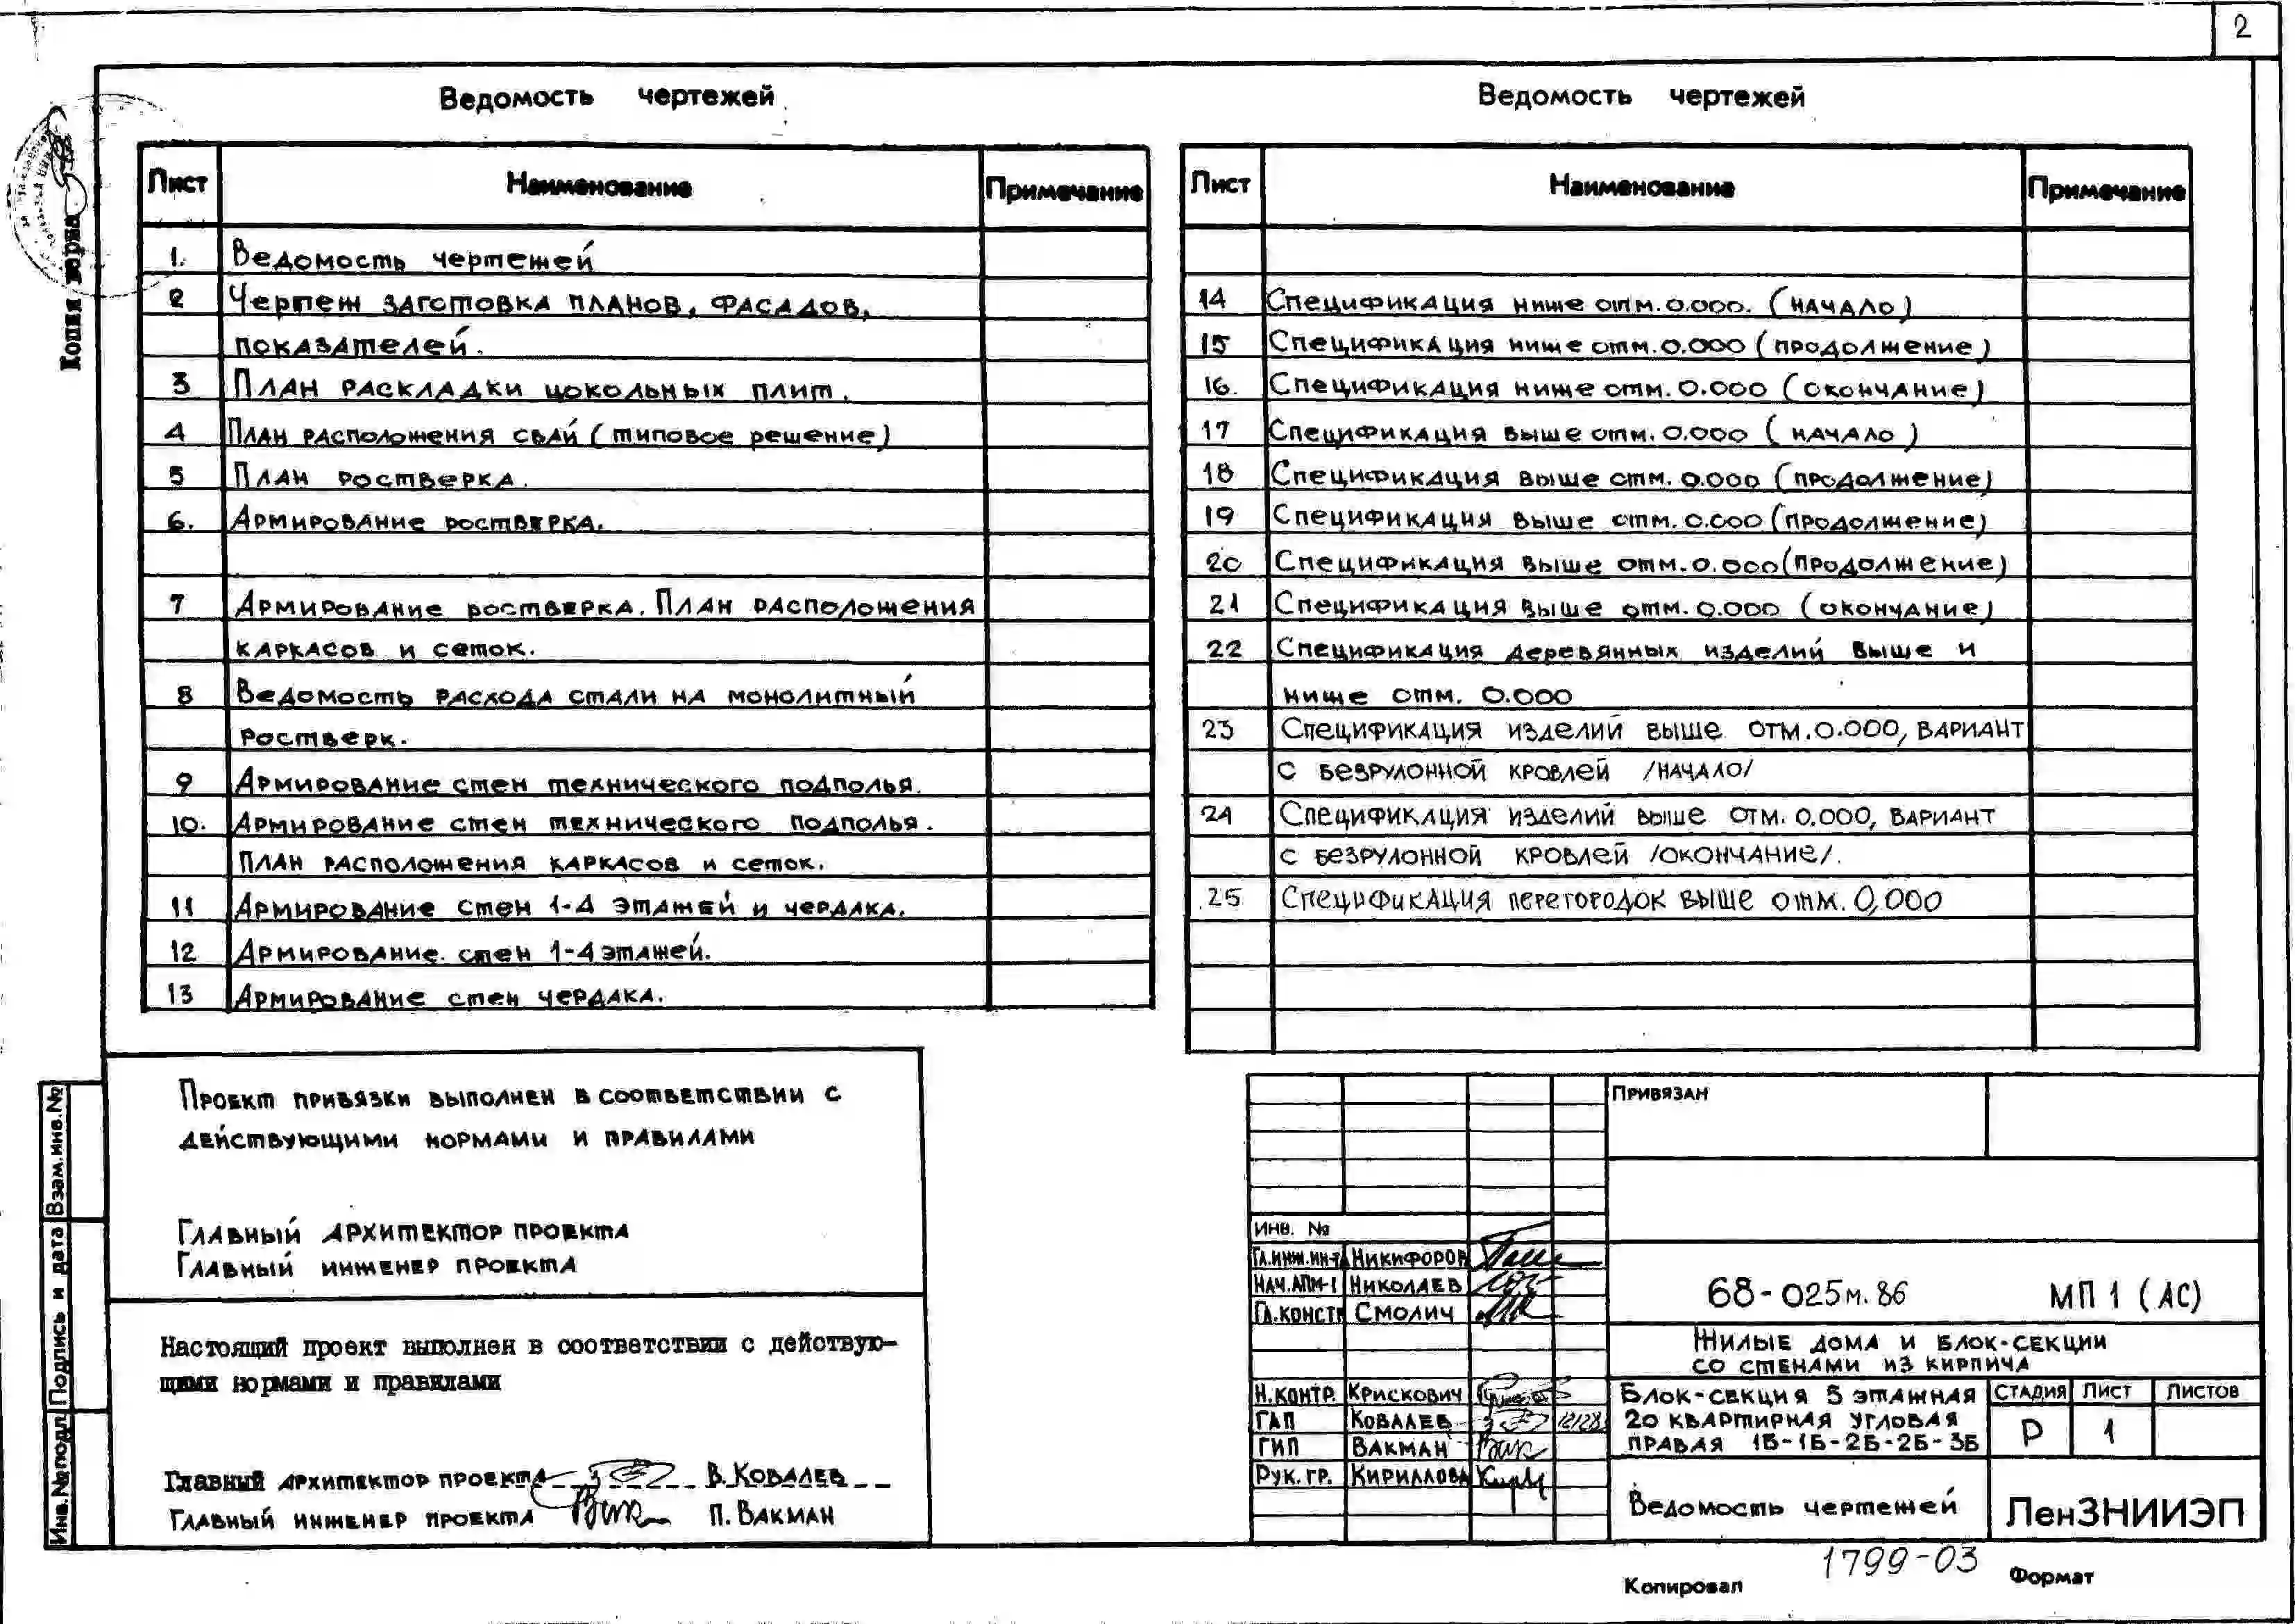 2
Ведомость чертежей
Лист Наименование Примечание
1. Ведомость чертежей
2 Чертеж заготовка планов, фасадов,
показателей.
3 План раскладки цокольных плит.
4 План расположения свай (типовое решение)
5 План ростверка.
6. Армирование ростверка.
7 Армирование ростверка. План расположения
каркасов и сеток.
8 Ведомость расхода стали на монолитный
ростверк.
9 Армирование стен технического подполья.
10. Армирование стен технического подполья.
План расположения каркасов и сеток.
11 Армирование стен 1-4 этажей и чердака.
12 Армирование стен 1-4 этажей.
13 Армирование стен чердака.
Ведомость чертежей
Лист Наименование Примечание
14 Спецификация ниже отм. 0.000. (начало)
15 Спецификация ниже отм. 0.000 (продолжение)
16. Спецификация ниже отм. 0.000 (окончание)
17 Спецификация выше отм. 0.000 (начало)
18 Спецификация выше отм. 0.000 (продолжение)
19 Спецификация выше отм. 0.000 (продолжение)
20 Спецификация выше отм. 0.000 (продолжение)
21 Спецификация выше отм. 0.000 (окончание)
22 Спецификация деревянных изделий выше и
ниже отм. 0.000
23 Спецификация изделий выше отм. 0.000, вариант
с безрулонной кровлей /начало/
24 Спецификация изделий выше отм. 0.000, вариант
с безрулонной кровлей /окончание/.
25 Спецификация перегородок выше отм. 0,000
Копия верна
Проект привязки выполнен в соответствии с
действующими нормами и правилами
Главный архитектор проекта
Главный инженер проекта
Настоящий проект выполнен в соответствии с действую-
щими нормами и правилами
Главный архитектор проекта В. Ковалев
Главный инженер проекта П. Вакман
Взам.инв.№
Подпись и дата
Инв.№ подл.
Привязан
Инв. №
Гл.инж.ин-т Никифоров
Нач.АПМ-1 Николаев
Гл.констр Смолич
Н.контр. Крискович
ГАП Ковалев
ГИП Вакман
Рук.гр. Кириллова
68-025м.86 МП 1 (АС)
Жилые дома и блок-секции
со стенами из кирпича
Блок-секция 5 этажная
20 квартирная угловая
правая 1Б-1Б-2Б-2Б-3Б
Стадия Лист Листов
Р 1
Ведомость чертежей
ЛенЗНИИЭП
1799-03
Копировал Формат